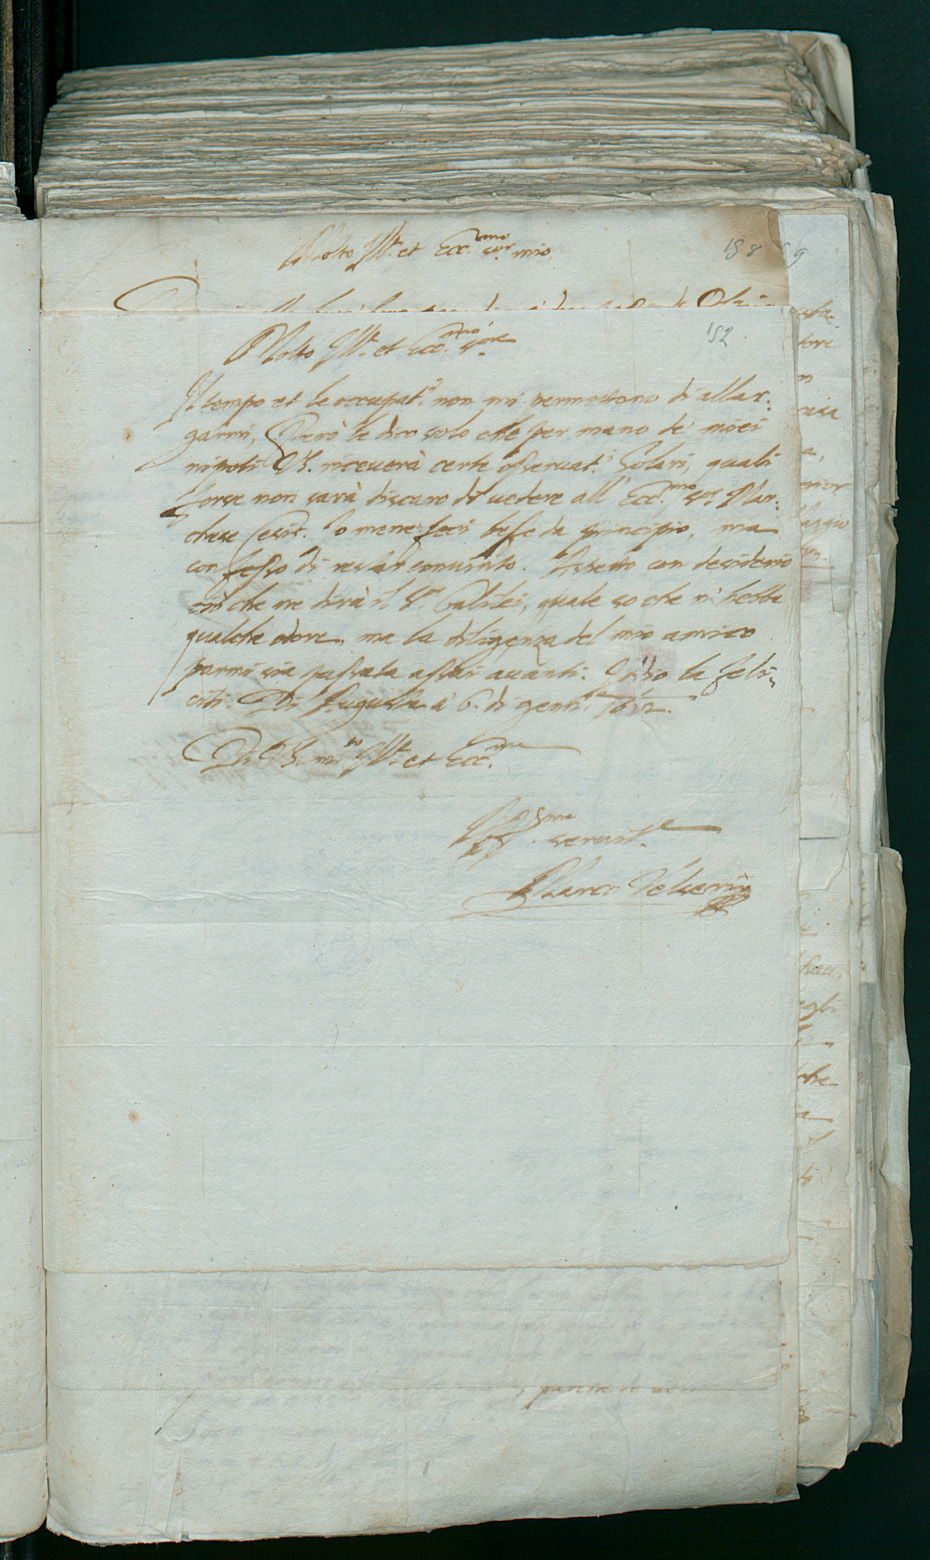 Molto Ill.re et Ecc.mo s.or mio
188
152
Molto Ill.re et Ecc.mo s.ore
Il tempo et le occupat.i non mi permettono di allar=
garmi, Però le dico solo che per mano de' miei
nipoti VS. riceverà certe osservat.i Solari, quali
forse non sarà discaro di vedere all' Ecc.mo sor Mar=
chese Cesis. Io mene feci beffe da principio, ma
confesso di restar convinto. Aspetto con desiderio
ciò che ne dirà il S.r Galilei, quale so che n' hebbe
qualche odore, ma la diligenza del mio amico
parmi sia passata assai avanti. Iddio la feli=
citi. Di Augusta à 6. di genn.o 1612.
Di VS. m.to Ill.re et Ecc.ma
Aff.mo servit.e
Marco Velseri